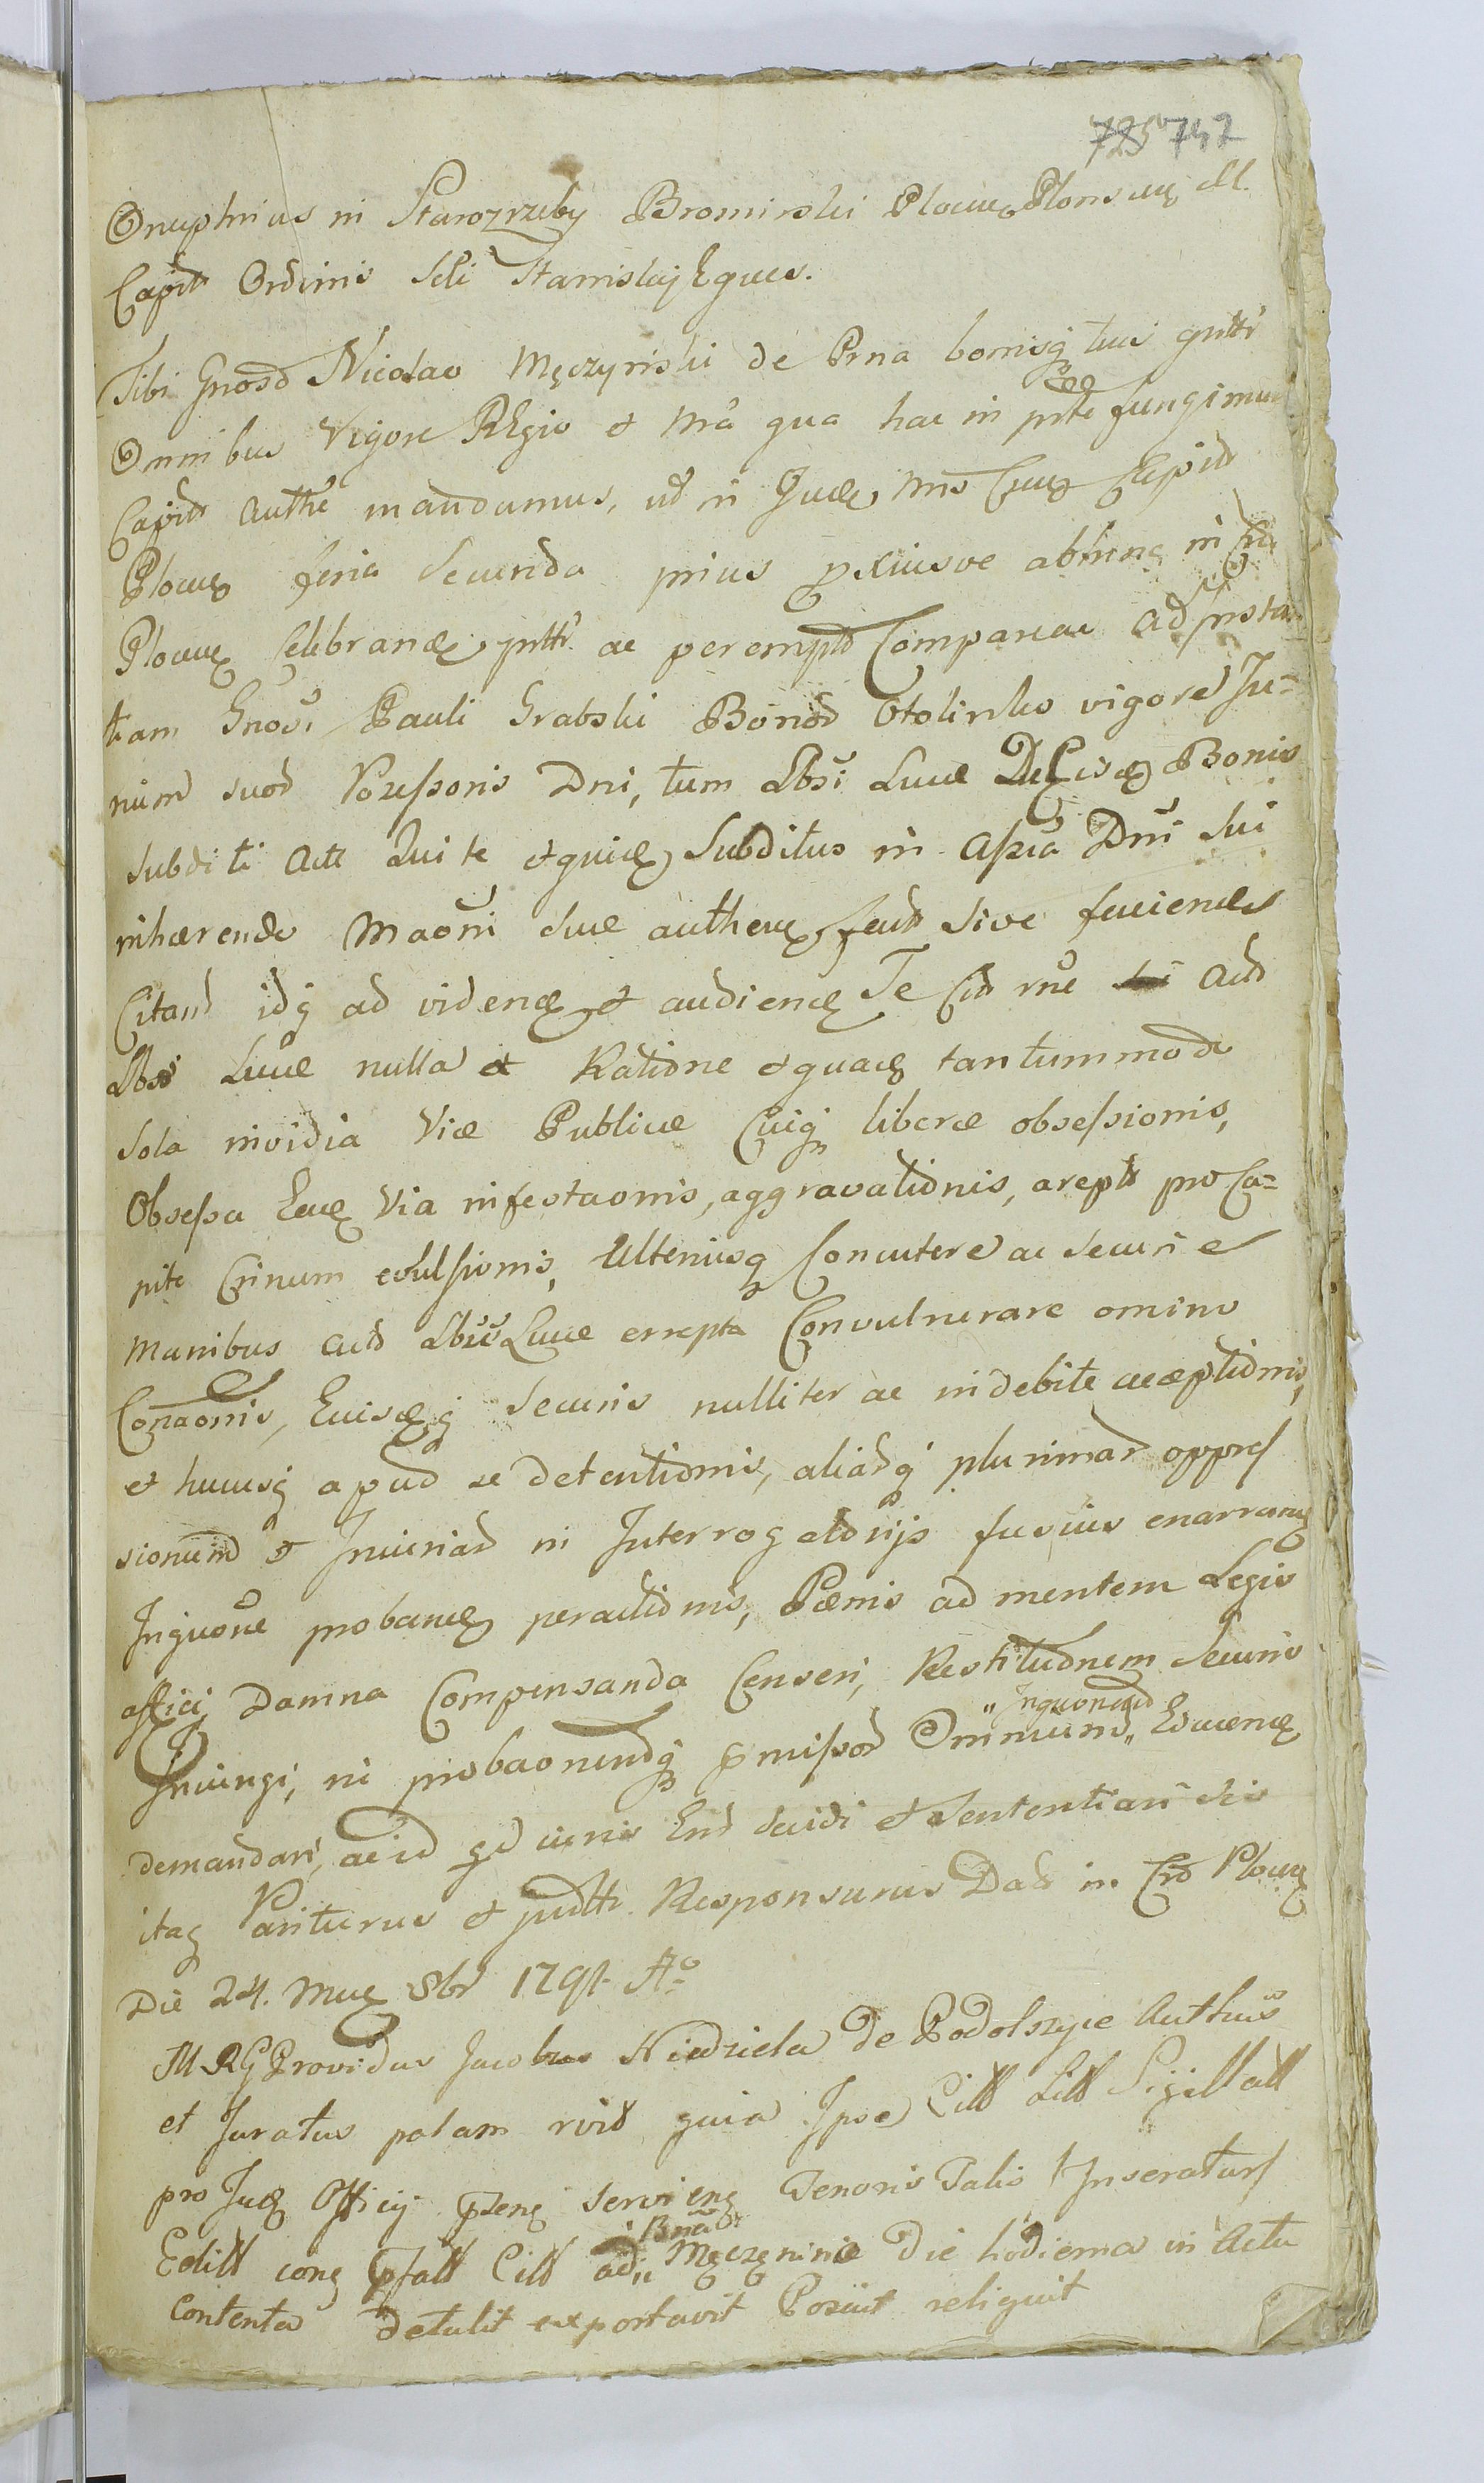 725 742
Onuphrius in Starozrzeby Bromirski Plocen Plonscen M.
Capit Ordinis Scti Stanislaj Eques.
Tibi Gnoso Nicolao Męczyński de Psna bonisq tuis gnttr
Omnibus Vigore Regio et Mra qua hac in pte fungimur
Capit Authte mandamus, ut in Jud nris Capit
Plocen feria Secunda prius pxiusve abhinc in
Plocen Celebrand pntr ac perempto Compareac ad insta
tiam Gnosi Pauli Grabski Bonor Otolinko vigore Ju-
rium suor Possessoris Dni, tum Lbsi Lucæ Bonis
subditi Act Qui te et quid Subditus in Assia Dni sui
inhærendo Maoni suæ authen, sive faciend
Citand idq ad videnđ et audiend Te Cit rne Act
Lbsi Lucæ nulla ex Ratione et quacq tantummodo
sola invidia Viæ Publicæ Cuiq liberæ obsessionis,
Obsessa Eaq Via infestaonis, aggravationis, arept pro Ca-
pite Crinum evulsionis, Ulteriusq Concutere ac Securi e
manibus Act Lbsi Lucæ errepta Convulnerare omino
Conaonis, Eiusq Securis nulliter ac indebite acceptionis,
et hucusq apud se detentionis, aliarq plurimar oppres
sionum et Injuriar in Interrogatorijs fusius enarrand
Inquone proband peractionis, Pœnis ad mentem Legis
affici, Damna Compensanda Censeri, Restitutionem Securis
Iniungi, in probaonemq pmissor Omnium „ Inquonem „ Educend
demandari, ac id qd iuris Erit decidi et Sententiari sis
itaq Pariturus et judtr. Responsurus Dat in Cro Plocen
Die 24. Mens 8br 1791. Ao
MRG Providus Jacobus Niedziela de Podolszyce Authus
et Juratus palam rvit quia Ipse Citt Litt Sigillatt
pro Jud Officij Psen servien Tenoris Talis Inseratur
Editt conq Psatt Citt ad „ Bna „ Męczeninie Die hodierna in Actu
contenta detulit exportavit Posuit reliquit